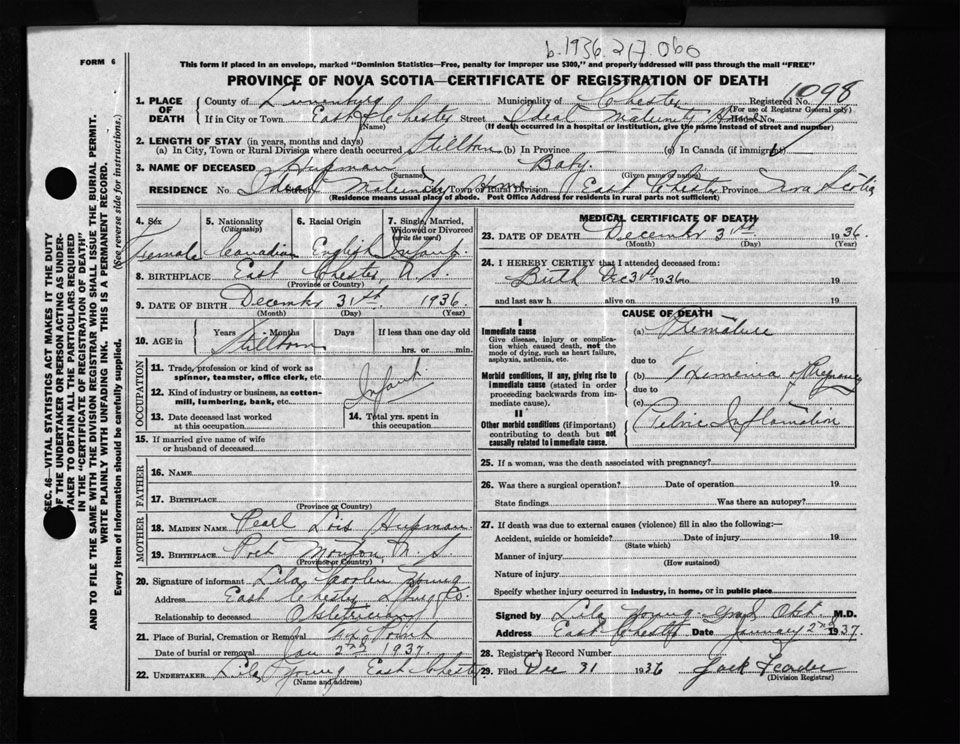 b.1936.217.060
FORM 6
This form if placed in an envelope, marked "Dominion Statistics—Free, penalty for improper use $300," and properly addressed will pass through the mail "FREE"
PROVINCE OF NOVA SCOTIA—CERTIFICATE OF REGISTRATION OF DEATH
SEC. 46—VITAL STATISTICS ACT MAKES IT THE DUTY
OF THE UNDERTAKER OR PERSON ACTING AS UNDER-
TAKER TO OBTAIN ALL THE PARTICULARS REQUIRED
IN THE "CERTIFICATE OF REGISTRATION OF DEATH"
AND TO FILE THE SAME WITH THE DIVISION REGISTRAR WHO SHALL ISSUE THE BURIAL PERMIT.
WRITE PLAINLY WITH UNFADING INK. THIS IS A PERMANENT RECORD.
Every item of Information should be carefully supplied. (See reverse side for instructions.)
1. PLACE OF DEATH County of Lunenburg Municipality of Chester Registered No. 1098
(For use of Registrar General only)
If in City or Town East Chester Street Ideal Maternity Home House No.
(Name) (If death occurred in a hospital or institution, give the name instead of street and number)
2. LENGTH OF STAY (in years, months and days)
(a) In City, Town or Rural Division where death occurred Stillborn (b) In Province — (c) In Canada (if immigrant)
3. NAME OF DECEASED Hupman Baby
(Surname) (Given name or names)
RESIDENCE No. Ideal Maternity Home City, Town or Rural Division East Chester Province Nova Scotia
(Residence means usual place of abode. Post Office Address for residents in rural parts not sufficient)
4. Sex 5. Nationality (Citizenship) 6. Racial Origin 7. Single, Married, Widowed or Divorced (write the word)
Female Canadian English Infant
8. BIRTHPLACE East Chester, N.S.
(Province or Country)
9. DATE OF BIRTH December 31st 1936
(Month) (Day) (Year)
10. AGE in Years Months Days If less than one day old
Stillborn hrs. or min.
OCCUPATION
11. Trade, profession or kind of work as
spinner, teamster, office clerk, etc.
12. Kind of industry or business, as cotton-
mill, lumbering, bank, etc. Infant
13. Date deceased last worked
at this occupation
14. Total yrs. spent in
this occupation
15. If married give name of wife
or husband of deceased
FATHER
16. NAME
17. BIRTHPLACE
(Province or Country)
MOTHER
18. MAIDEN NAME Pearl Lois Hupman
19. BIRTHPLACE Port Mouton N.S.
(Province or Country)
20. Signature of informant Lila Young
Address East Chester Co.
Relationship to deceased Obstetrician
21. Place of Burial, Cremation or Removal Fox Point
Date of burial or removal Jan 2nd 1937.
22. UNDERTAKER Lila Young East Chester
(Name and address)
MEDICAL CERTIFICATE OF DEATH
23. DATE OF DEATH December 31st 1936.
(Month) (Day) (Year)
24. I HEREBY CERTIFY that I attended deceased from:
Birth Dec 31st 1936 to 19
and last saw h alive on 19
CAUSE OF DEATH
I
Immediate cause
Give disease, injury or complica-
tion which caused death, not the
mode of dying, such as heart failure,
asphyxia, asthenia, etc.
(a) Premature
due to
Morbid conditions, if any, giving rise to
immediate cause (stated in order
proceeding backwards from im-
mediate cause).
(b) Toxemia of Pregnancy
due to
(c)
II
Other morbid conditions (if important)
contributing to death but not
causally related to immediate cause.
Pelvic Inflamation
25. If a woman, was the death associated with pregnancy?
26. Was there a surgical operation? Date of operation 19
State findings Was there an autopsy?
27. If death was due to external causes (violence) fill in also the following:—
Accident, suicide or homicide? Date of injury 19
(State which)
Manner of injury
(How sustained)
Nature of injury
Specify whether injury occurred in industry, in home, or in public place
Signed by Lila Young Grad Obst. M.D.
Address East Chester Date January 2nd 1937.
28. Registrar's Record Number
29. Filed Dec 31 1936 Jack
(Division Registrar)